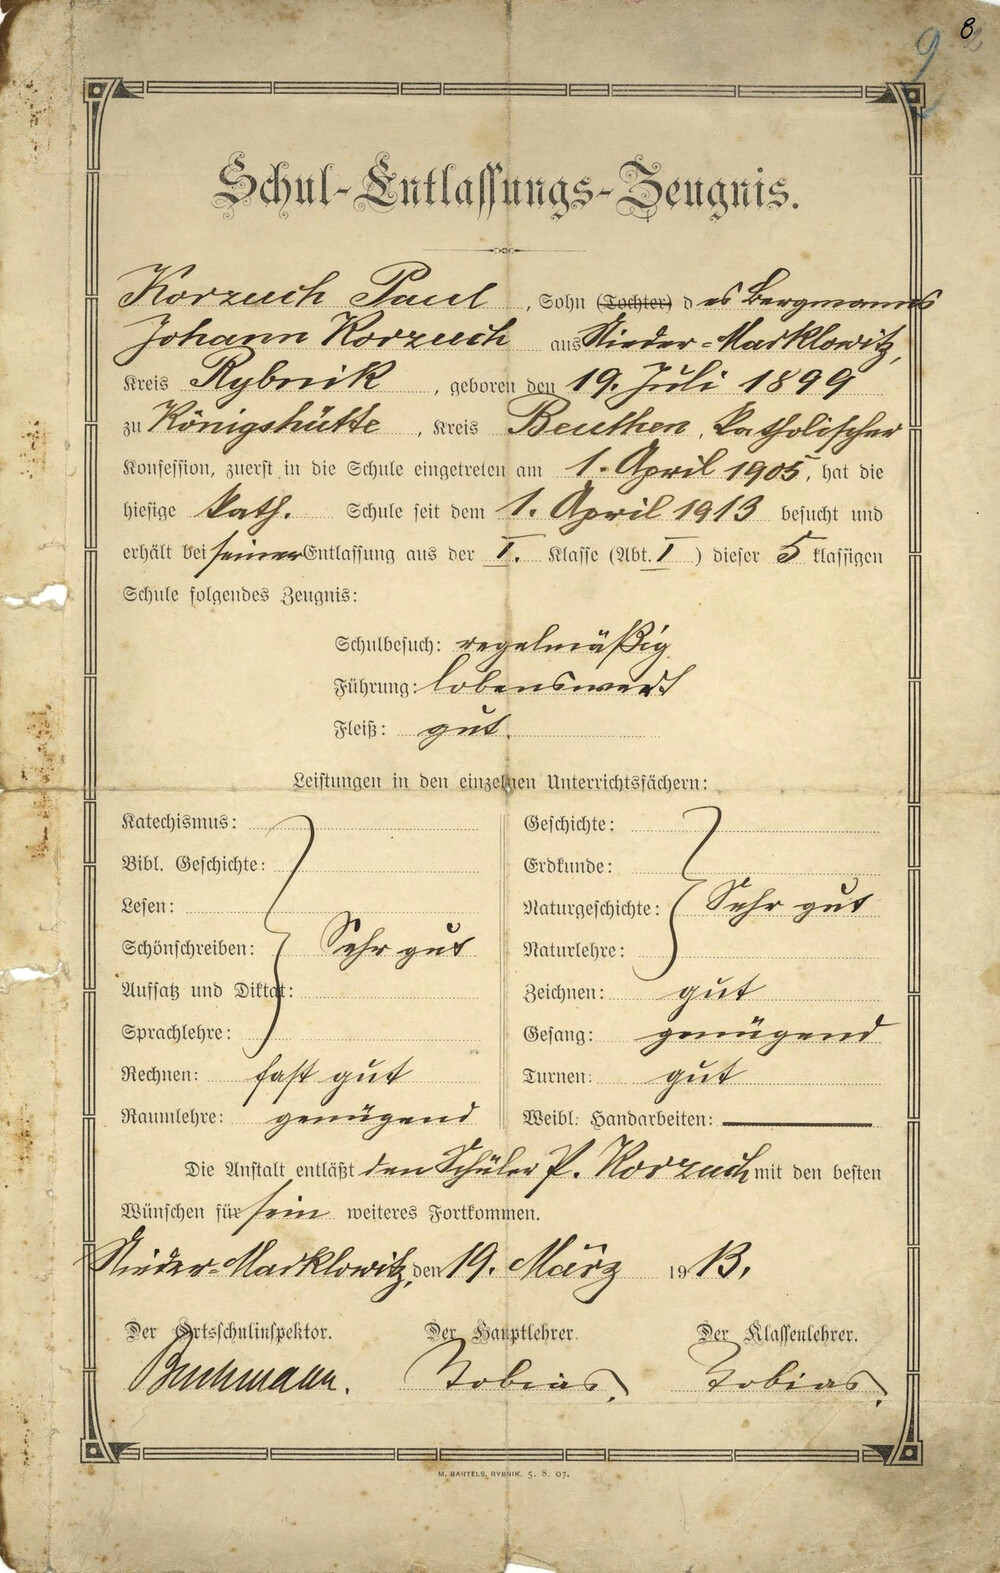 8
9
Schul-Entlassungs-Zeugnis.
Korzuch Paul, Sohn (Tochter) des Bergmanns
Johann Korzuch aus Nieder-Marklowitz,
Kreis Rybnik, geboren den 19. Juli 1899
zu Königshütte, Kreis Beuthen, katholischer
Konfession, zuerst in die Schule eingetreten am 1. April 1905, hat die
hiesige kath. Schule seit dem 1. April 1913 besucht und
erhält bei seiner Entlassung aus der I. Klasse (Abt. I) dieser 5 klassigen
Schule folgendes Zeugnis:
Schulbesuch: regelmäßig
Führung: lobenswert
Fleiß: gut.
Leistungen in den einzelnen Unterrichtsfächern:
Katechismus:
Bibl. Geschichte:
Lesen:
Schönschreiben: Sehr gut
Aufsatz und Diktat:
Sprachlehre:
Rechnen: fast gut
Raumlehre: genügend
Geschichte:
Erdkunde:
Naturgeschichte: Sehr gut
Naturlehre:
Zeichnen: gut
Gesang: genügend
Turnen: gut
Weibl. Handarbeiten:
Die Anstalt entläßt den Schüler P. Korzuch mit den besten
Wünschen für sein weiteres Fortkommen.
Nieder-Marklowitz, den 19. März 1913.
Der Ortsschulinspektor. Der Hauptlehrer. Der Klassenlehrer.
Buchmann. Tobias. Tobias.
M. BARTELS, RYBNIK. 5. 8. 07.